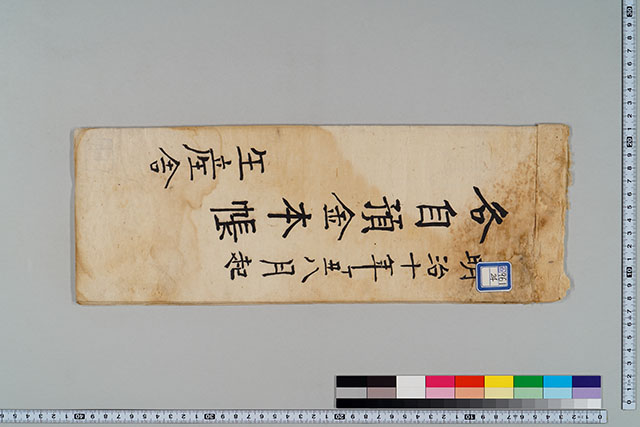 明治十年丁丑八月起
各自預金本帳
生産舎